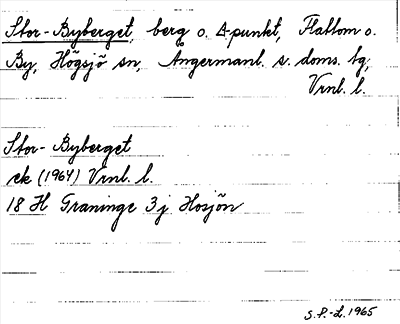 Stor-Byberget, berg o. Δ-punkt, Flattom o.
By, Högsjö sn, Ångermanl. s. doms. tg,
Vrnl. l.
Stor-Byberget
ek (1964) Vrnl. l.
18 H Graninge 3 j Hosjön
S.P.-L. 1965